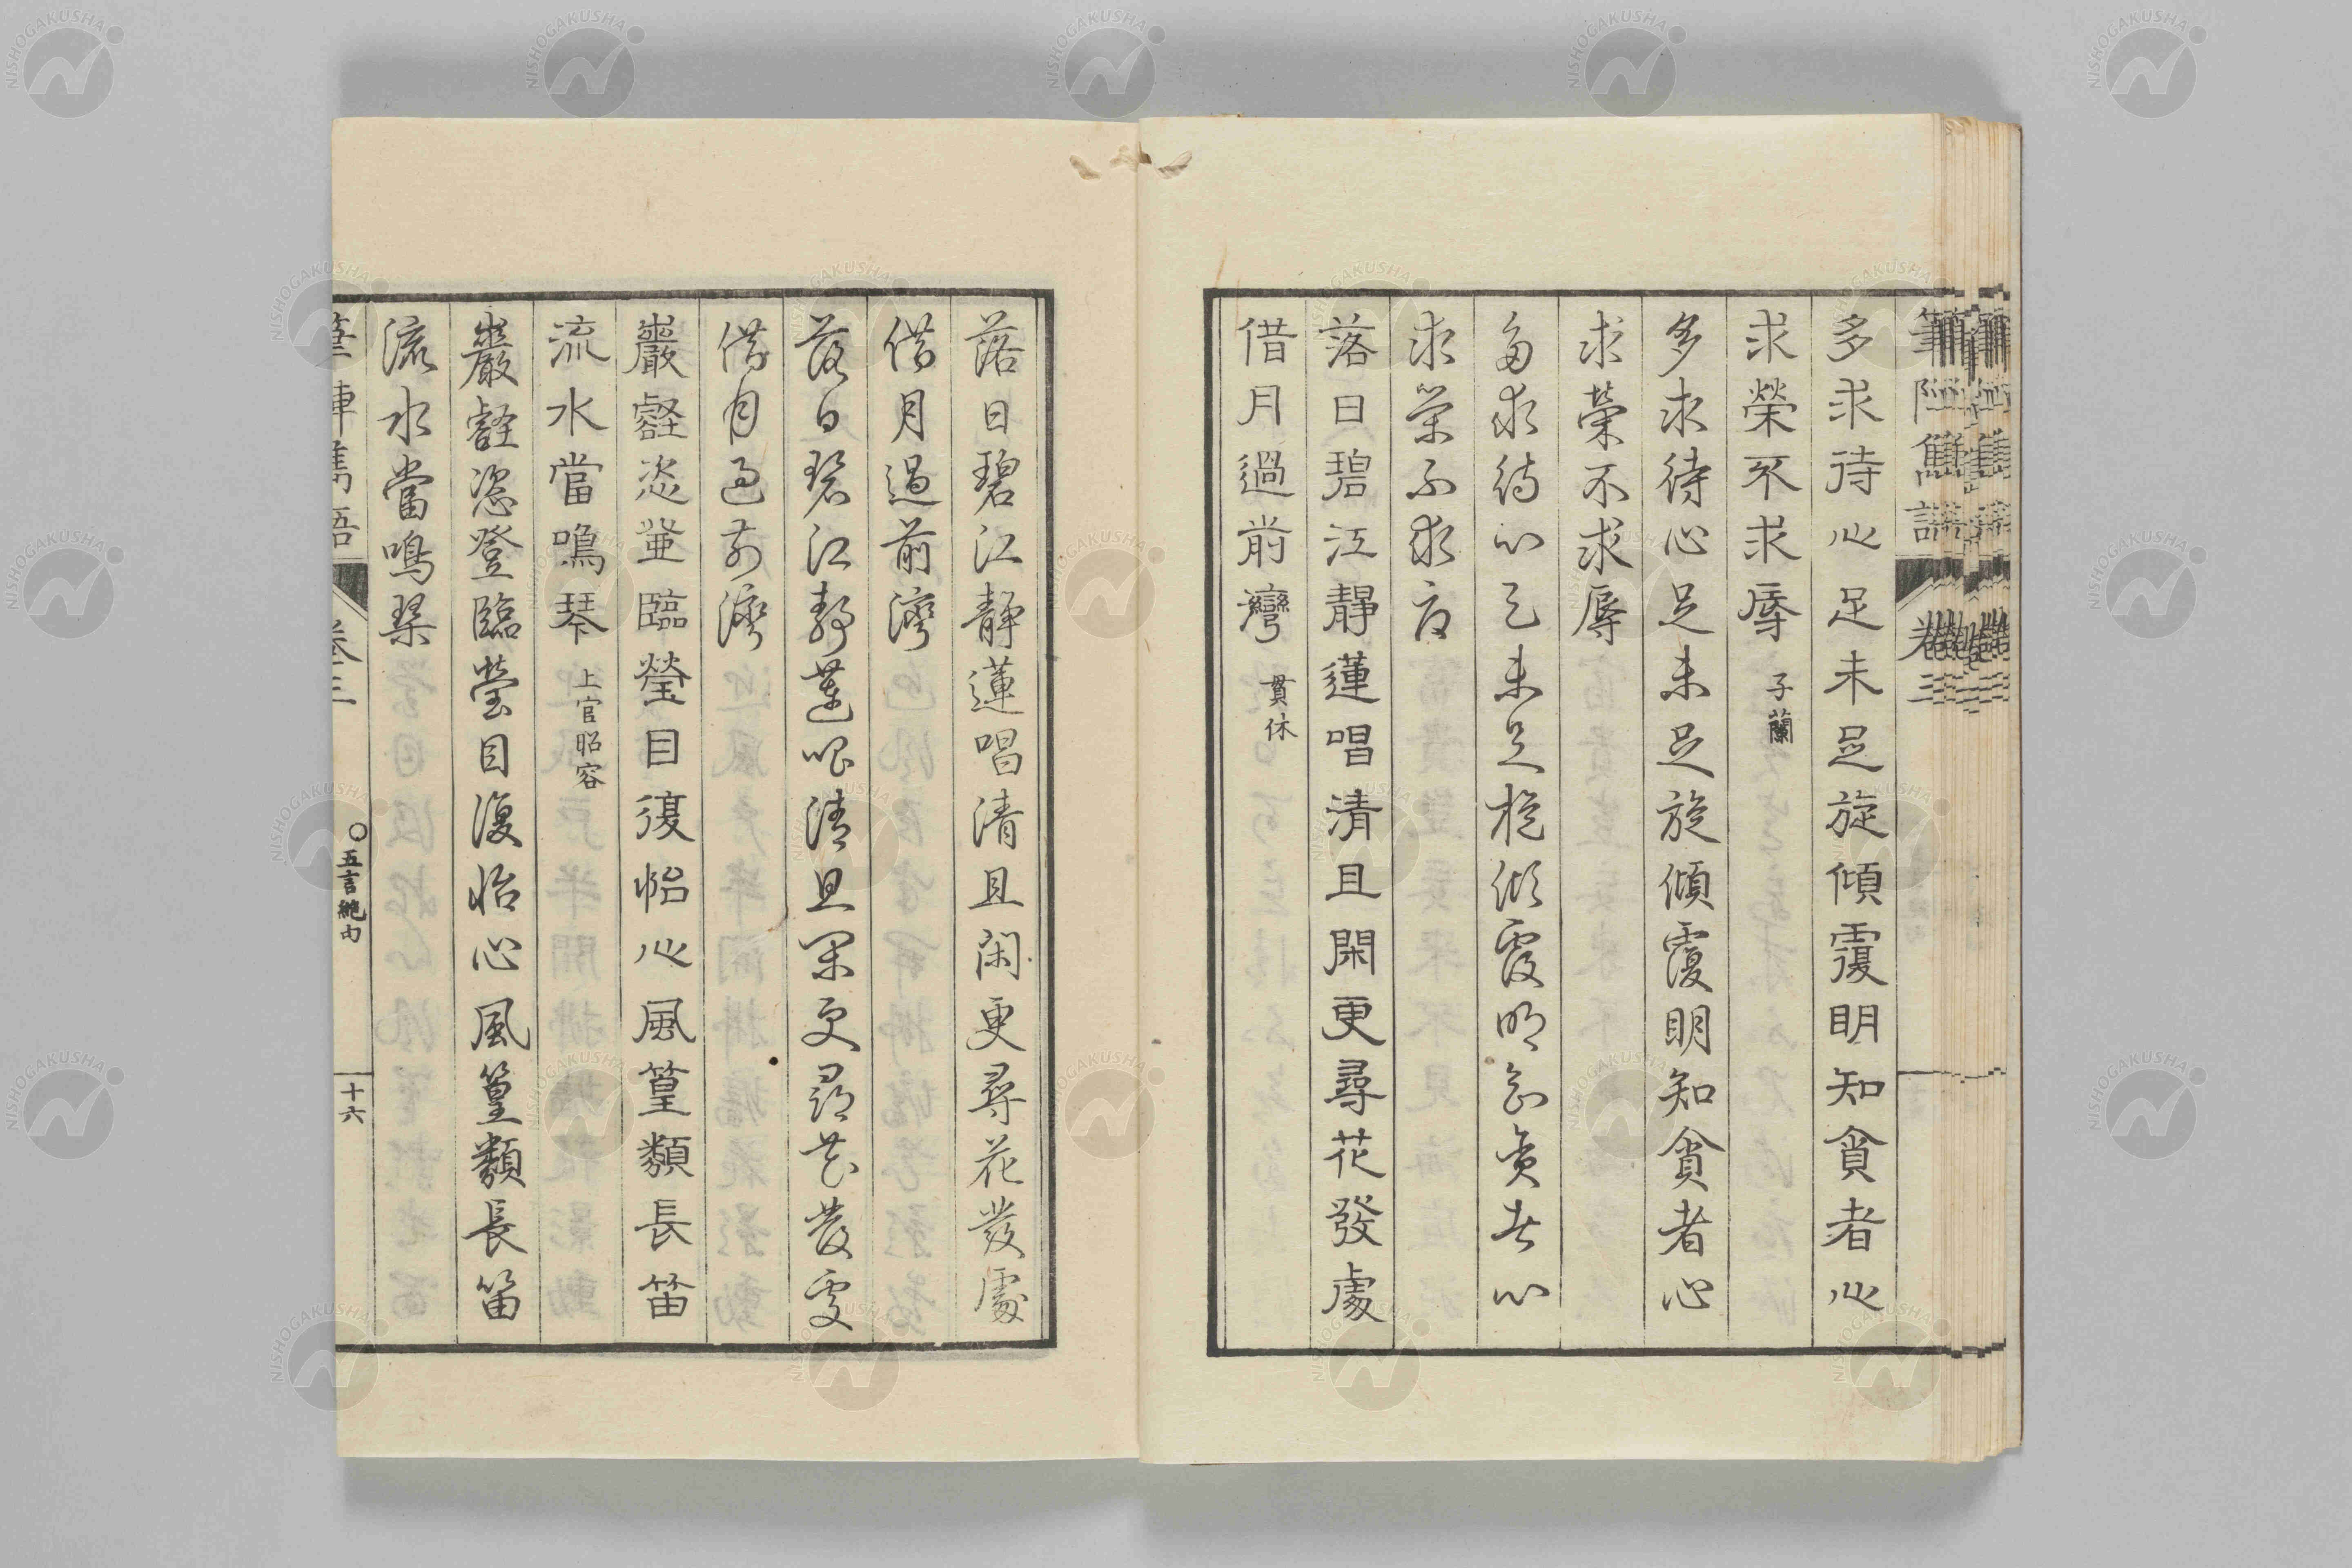 筆陣雋語
卷三
多求待心足未足旋傾覆明知貪者心
求榮不求辱
子蘭
多求待心足未足旋傾覆明知貪者心
求榮不求辱
多求待心足未足旋傾覆明知貪者心
求榮不求辱
落日碧江靜蓮唱清且閑更尋花發處
借月過前灣
貫休
落日碧江靜蓮唱清且閑更尋花發處
借月過前灣
落日碧江靜蓮唱清且閑更尋花發處
借月過前灣
巖壑恣登臨瑩目復怡心風篁類長笛
流水當鳴琴
上官昭容
巖壑恣登臨瑩目復怡心風篁類長笛
流水當鳴琴
筆陣雋語
卷三
〇五言絶句
十六
NISHOGAKUSHA